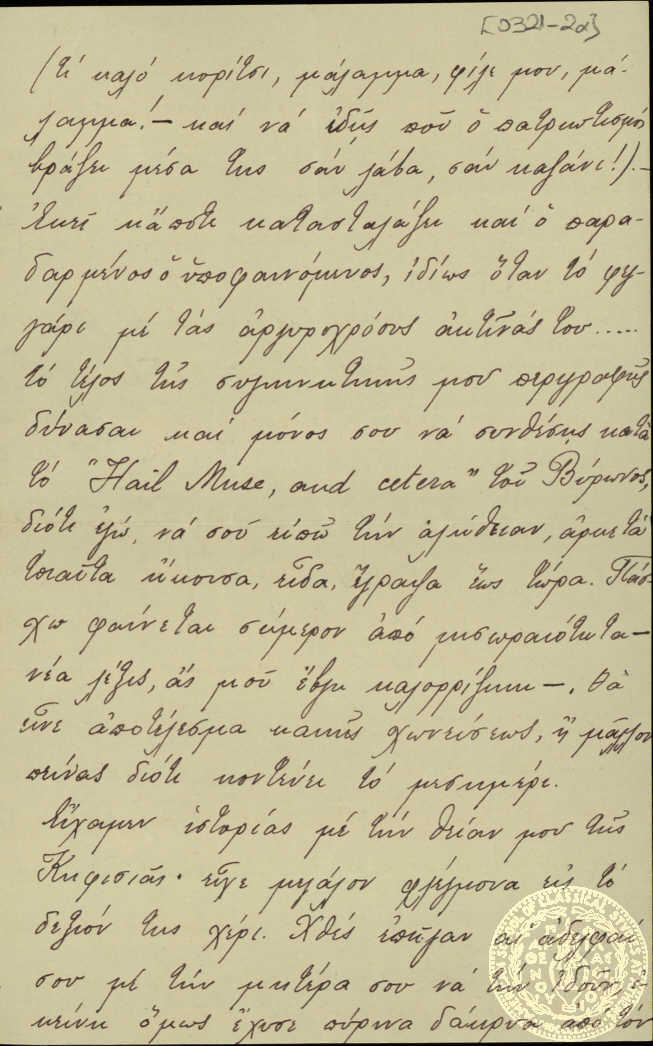 [D321-2α]
(τί καλό κορίτσι, μάλαμμα, φίλε μου, μά-
λαμμα! – καί νά ἰδῇς ποῦ ὁ πατριωτισμός
βράζει μέσα της σάν λάβα, σάν καζάνι!). –
Ἐκεῖ κἄποτε κατασταλάζει καί ὁ παρα-
δαρμένος ὁ ὑποφαινόμενος, ἰδίως ὅταν τό φεγ-
γάρι μέ τάς ἀργυροχρόους ἀκτῖνάς του.....
τό τέλος τῆς συγκινητικῆς μου περιγραφῆς
δύνασαι καί μόνος σου νά συνθέσῃς κατά
τό "Hail Muse, and cetera" τοῦ Βύρωνος,
διότι ἐγώ, νά σοῦ εἰπῶ τήν ἀλήθειαν, ἀρκετά
τοιαῦτα ἤκουσα, εἶδα, ἔγραψα ἕως τώρα. Πάσ-
χω φαίνεται σήμερον ἀπό μισωραιότητα –
νέα λέξις, ἄς μοῦ ἔβγῃ καλορρίζικη –. Θά
εἶνε ἀποτέλεσμα κακῆς χωνεύσεως, ἤ μᾶλλον
πείνας διότι κοντεύει τό μεσημέρι.
Εἴχαμεν ἱστορίας μέ τήν θείαν μου τῆς
Κηφισιᾶς· εἶχε μεγάλον φλέγμονα εἰς τό
δεξιόν της χέρι. Χθές ἐπῆγαν αἱ ἀδελφαί
σου μέ τήν μητέρα σου νά τήν ἰδοῦν, ἐ-
κείνη ὅμως ἔχυσε πύρινα δάκρυα ἀπό τόν